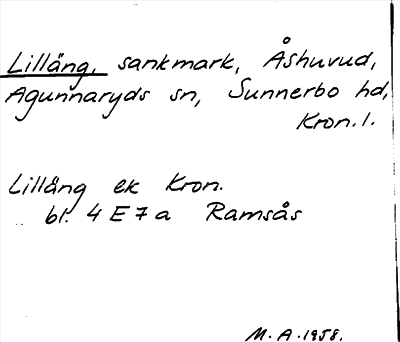 Lilläng, sankmark, Åshuvud,
Agunnaryds sn, Sunnerbo hd,
Kron. l.
Lilläng ek Kron.
bl. 4 E 7 a Ramsås
M. A. 1958.